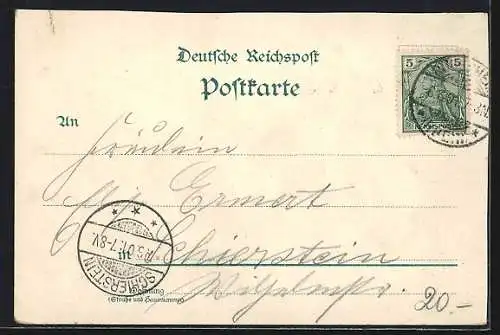 Deutsche Reichspost
Postkarte
5 5
An
Fräulein
Ermert
Schierstein
Wilhelmstr.
SCHIERSTEIN
7-8V.
Wohnung
(Straße und Hausnummer)
20.-